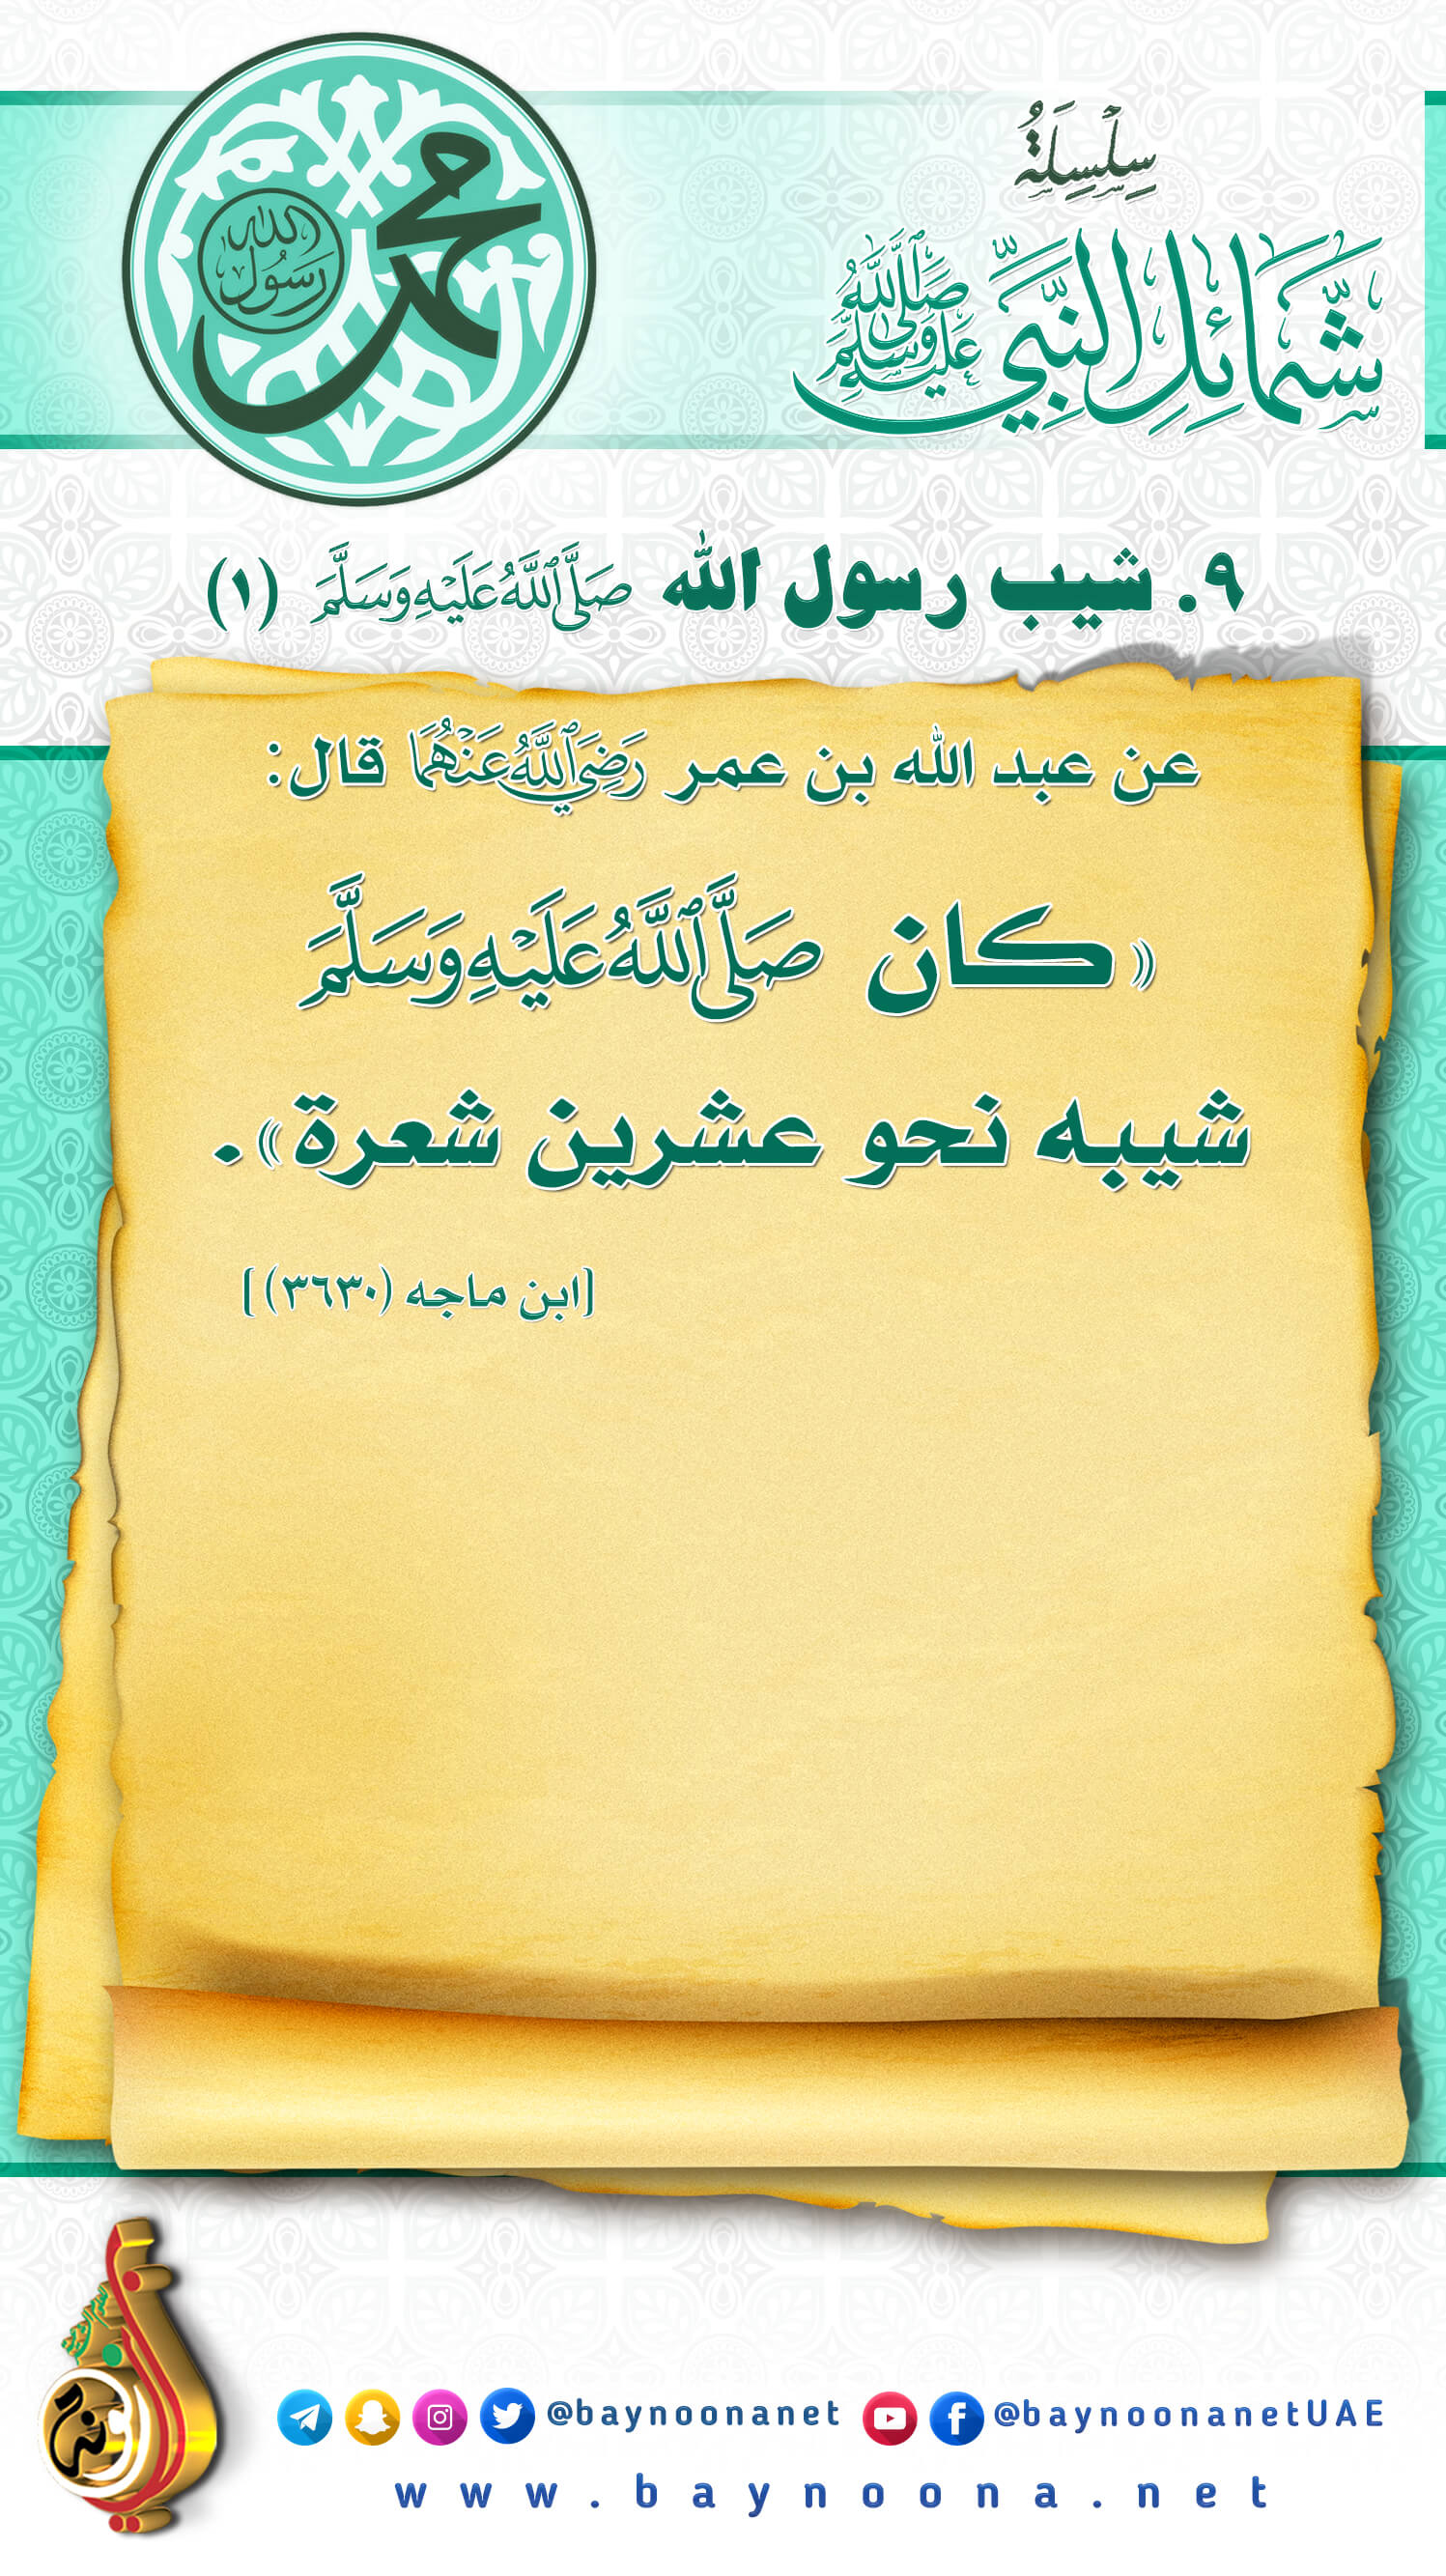 سِلْسِلَةُ
شَمَائِلِ النَّبِيِّ صَلَّى اللَّهُ عَلَيْهِ وَسَلَّمَ
محمد
رَسُول
الله
٩. شيب رسول الله صَلَّى اللَّهُ عَلَيْهِ وَسَلَّمَ (١)
عن عبد الله بن عمر رَضِيَ اللَّهُ عَنْهُمَا قال:
«كان صَلَّى اللَّهُ عَلَيْهِ وَسَلَّمَ
شيبه نحو عشرين شعرة».
[ابن ماجه (٣٦٣٠)]
@baynoonanet @baynoonanetUAE
www.baynoona.net